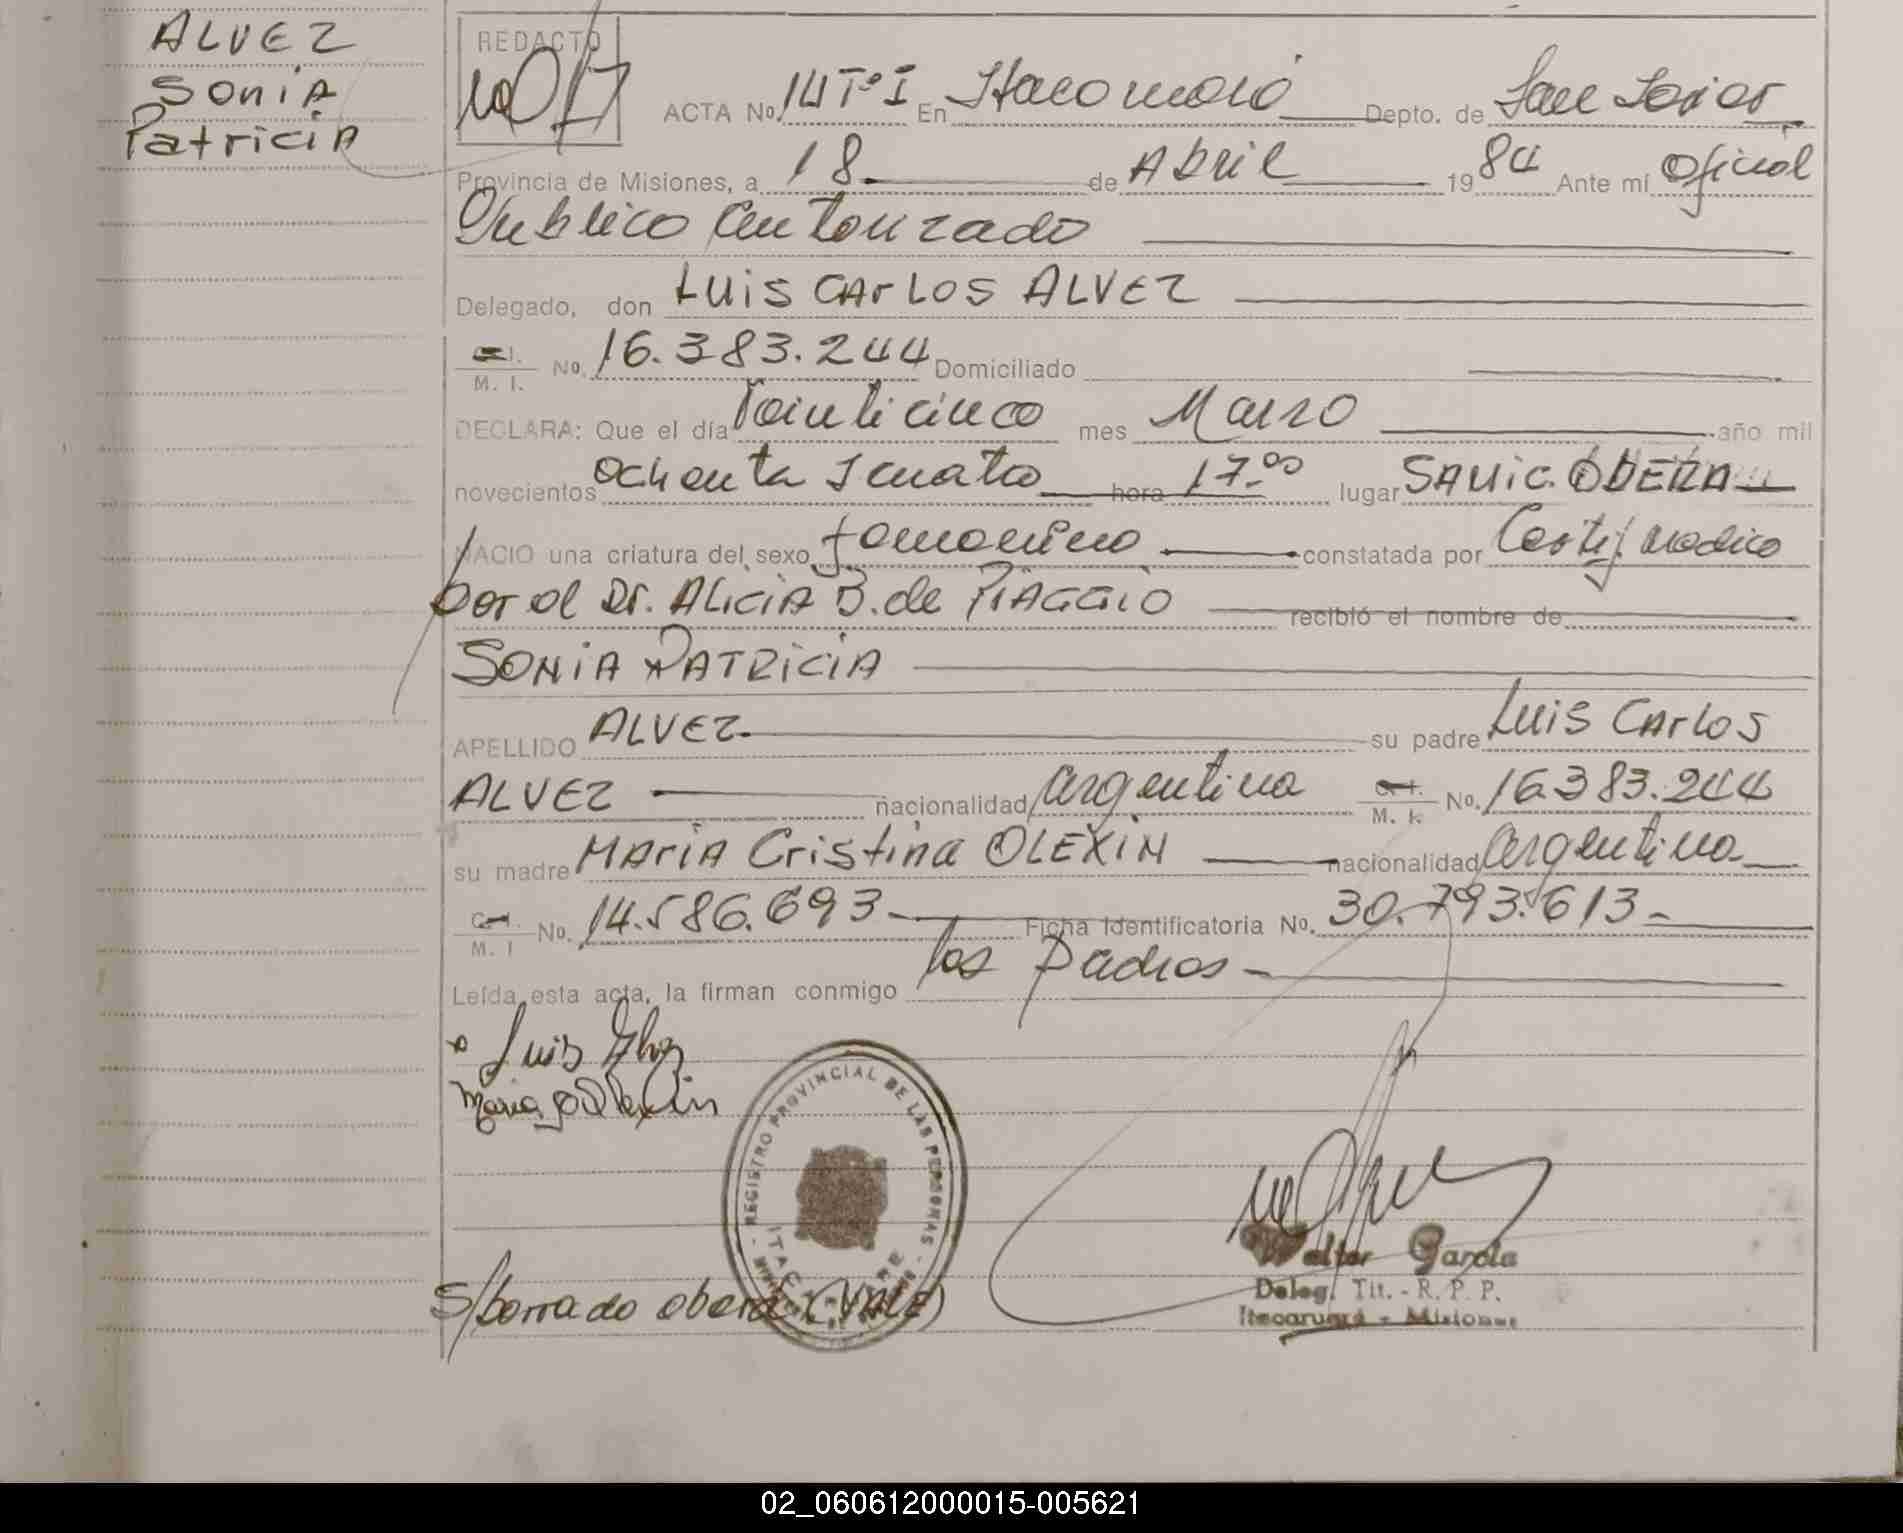 ALVEZ
Sonia
Patricia
REDACTO
ACTA No. 14 Tº I En Itacaruaré Depto. de San Javier
Provincia de Misiones, a 18 de Abril 1984 Ante mí Oficial
Publico Autorizado
Delegado, don Luis Carlos ALVEZ
C. I. M. I. No. 16.383.244 Domiciliado
DECLARA: Que el día Veinticinco mes Marzo año mil
novecientos ochenta y cuatro hora 17.00 lugar SAMIC. OBERA
NACIO una criatura del sexo femenino constatada por Certif. medico
por el Dr. ALICIA B. de PIAGGIO recibió el nombre de
SONIA PATRICIA
APELLIDO ALVEZ su padre Luis Carlos
ALVEZ nacionalidad argentina C. I. M. I. No. 16.383.244
su madre Maria Cristina OLEXIN nacionalidad argentina
C. I. M. I No. 14.586.693 Ficha Identificatoria No. 30.793.613
Leída esta acta, la firman conmigo los Padres
Luis Alvez
Maria Olexin
REGISTRO PROVINCIAL DE LAS PERSONAS
Walter García
Deleg. Tit. - R. P. P.
Itacaruaré - Misiones
S/borrado obera (VALE)
02_060612000015-005621